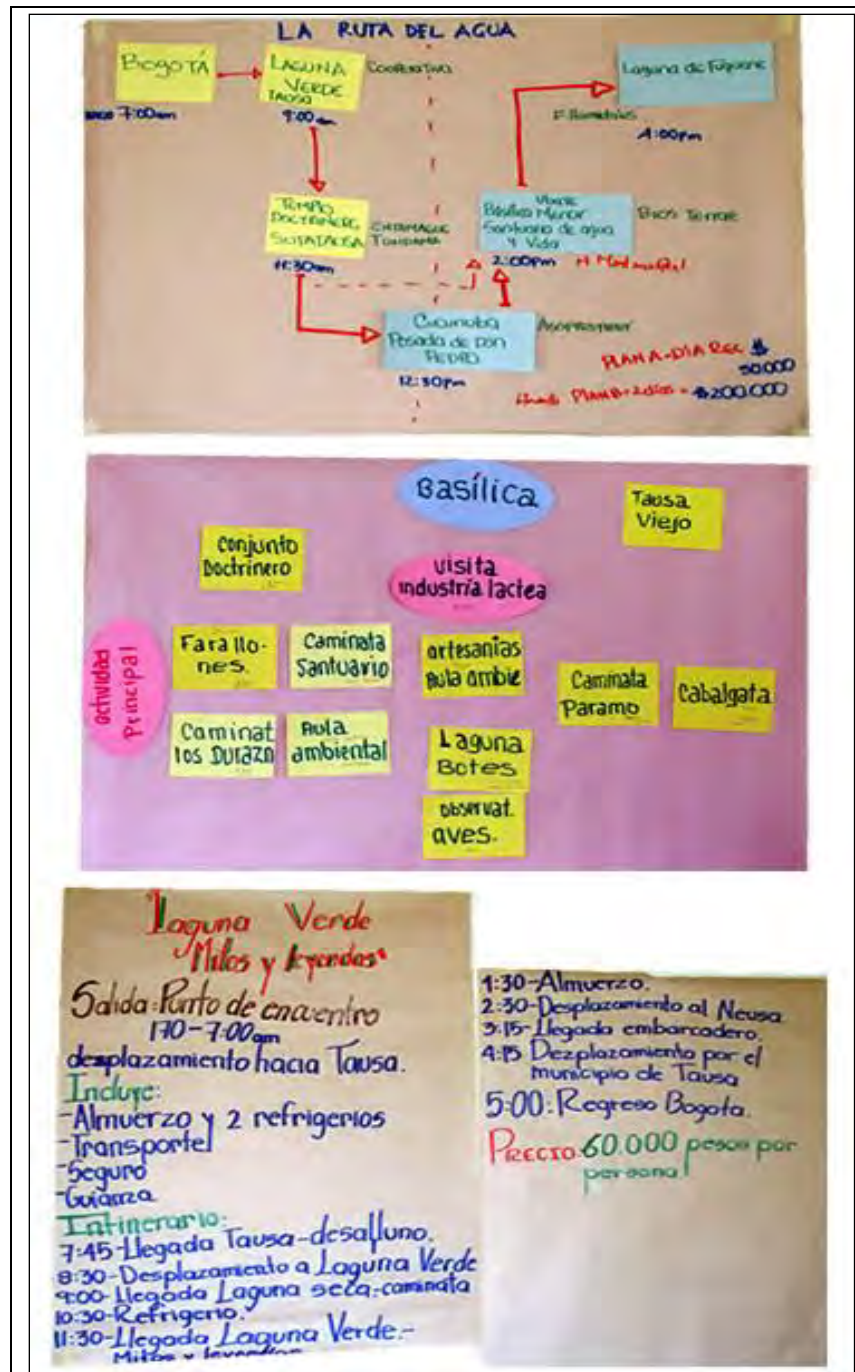 LA RUTA DEL AGUA
BOGOTÁ
7:00am
LAGUNA
VERDE
TAUSA
COOPERATIVA
9:00am
Laguna de Fúquene
4:00pm
TEMPLO
DOCTRINERO
SUTATAUSA
11:30am
Basílica Menor
Santuario de agua
y Vida
2:00pm
Cucunuba
Posada de DON
PEDRO
12:30pm
PLAN A-DIA REC $
50.000
PLAN B-2dias = $200.000
Basílica
Tausa
Viejo
Conjunto
Doctrinero
visita
industría lactea
actividad
Principal
Farallo-
nes.
Caminata
Santuario
artesanias
Aula ambie
Caminata
Paramo
Cabalgata
Caminat
los Durazn
Aula
ambiental
Laguna
Botes
observat.
aves.
Laguna Verde
Mitos y leyendas
Salida: Punto de encuentro
170-7:00am
desplazamiento hacia Tausa.
Incluye:
-Almuerzo y 2 refrigerios
-Transporte
-Seguro
-Guianza
Intinerario:
7:45-Llegada Tausa-desalluno.
8:30-Desplazamiento a Laguna Verde
9:00-Llegada Laguna seca-caminata
10:30-Refrigerio.
11:30-Llegada Laguna Verde.-
Mitos y
1:30-Almuerzo.
2:30-Desplazamiento al Neusa
3:15-Llegada embarcadero.
4:15 Dezplazamiento por el
municipio de Tausa
5:00:Regreso Bogota.
PRECIO:60.000 pesos por
persona